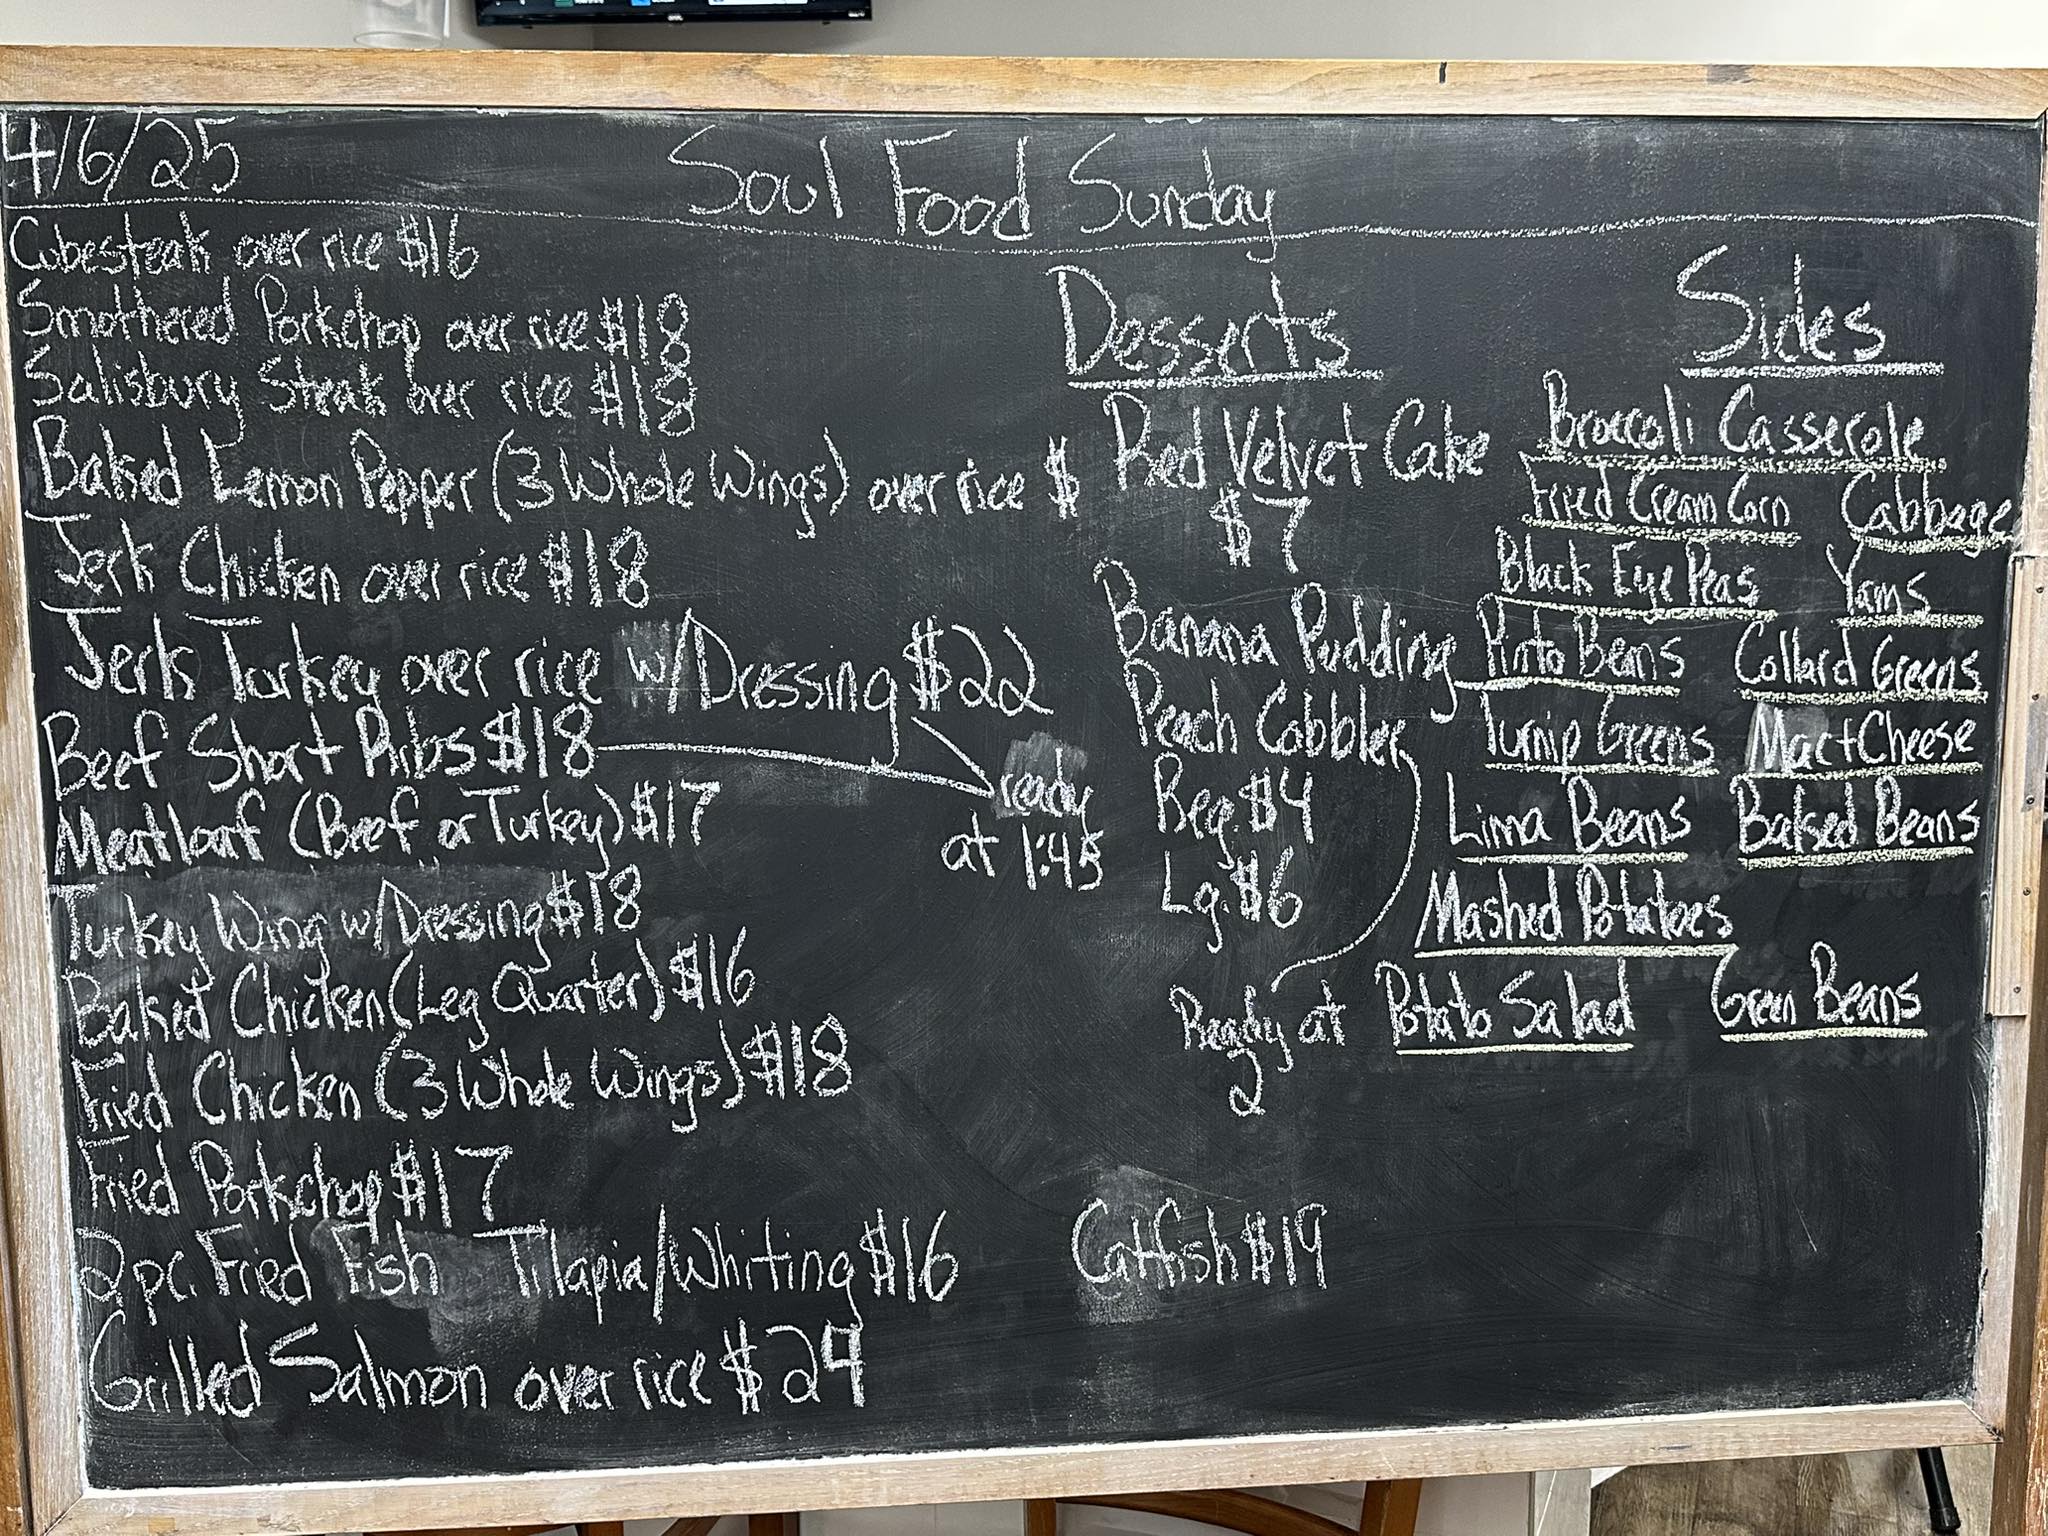 4/6/25
Soul Food Sunday
Cubesteak over rice $16
Smothered Porkchop over rice $18
Salisbury Steak over rice $18
Baked Lemon Pepper (3 Whole Wings) over rice $
Jerk Chicken over rice $18
Jerk Turkey over rice w/Dressing $22
Beef Short Ribs $18
ready
at 1:45
Meatloaf (Beef or Turkey) $17
Turkey Wing w/Dressing $18
Baked Chicken (Leg Quarter) $16
Fried Chicken (3 Whole Wings) $18
Fried Porkchop $17
2pc. Fried Fish Tilapia/Whiting $16 Catfish $19
Grilled Salmon over rice $24
Desserts
Red Velvet Cake
$7
Banana Pudding
Peach Cobbler
Reg. $4
Lg. $6
Ready at
2
Sides
Broccoli Casserole
Fried Cream Corn Cabbage
Black Eye Peas Yams
Pinto Beans Collard Greens
Turnip Greens Mac+Cheese
Lima Beans Baked Beans
Mashed Potatoes
Potato Salad Green Beans